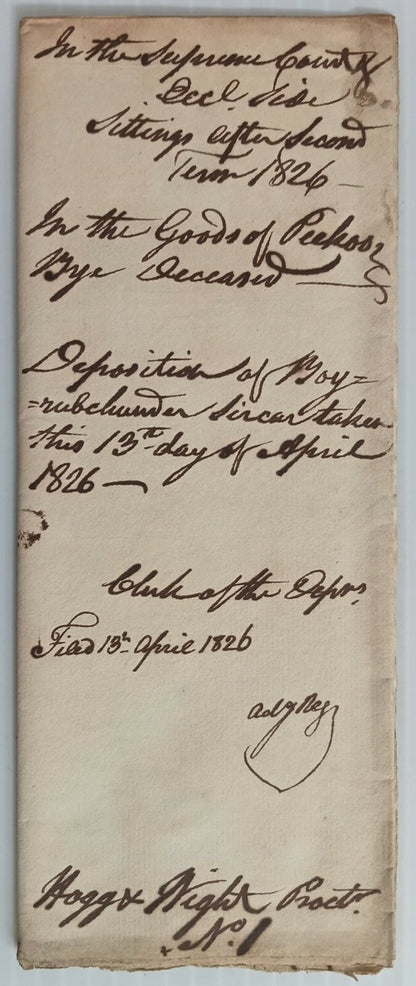 In the Supreme Court &
Eccl. Side
Sittings after Second
Term 1826 –
In the Goods of Peekoo
Bye Deceased —
Deposition of Boy=
=rubchunder Sircar taken
this 13th day of April
1826 —
Clerk of the Depns.
Filed 13th April 1826
Hogg & Wight Proctr.
No. 1